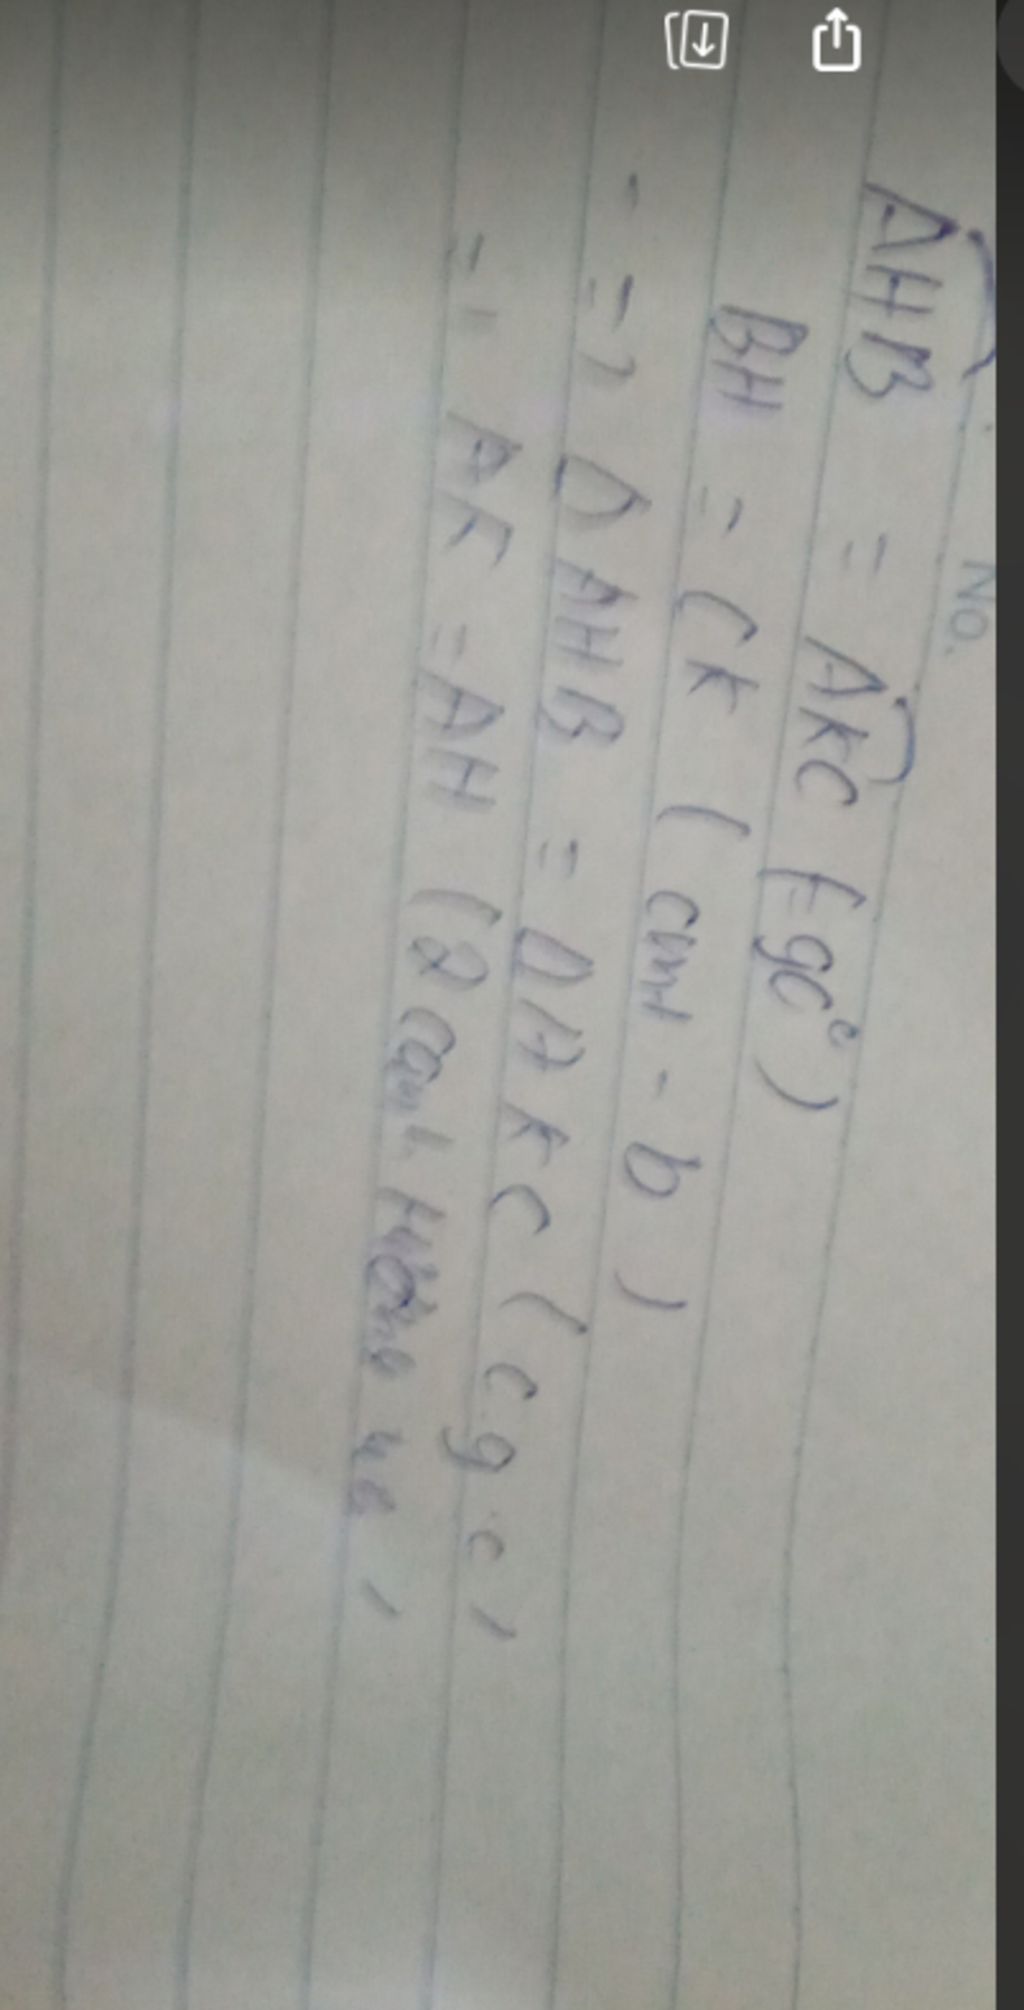 No.
AHB = AKC (= 90°)
BH = CK (cmt - b)
- => Δ AHB = Δ AKC (c g c)
=> AK = AH (2 cạnh tương ứ)